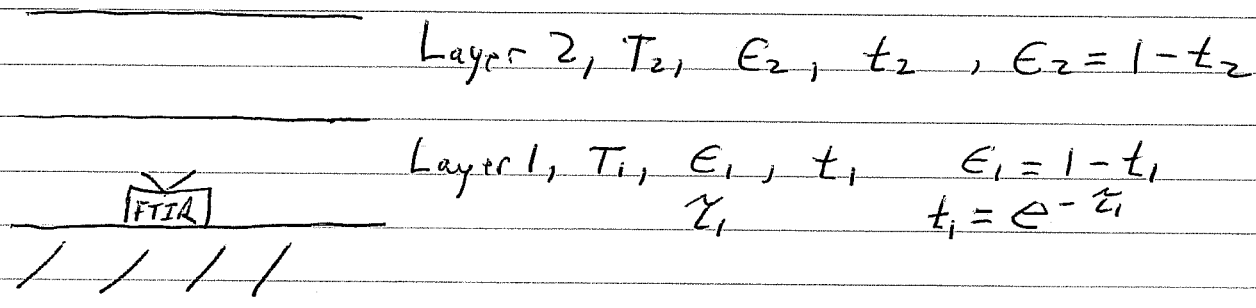 Layer 2, T₂, ϵ₂, t₂, ϵ₂ = 1 - t₂
Layer 1, T₁, ϵ₁, t₁ ϵ₁ = 1 - t₁
FTIR τ₁ t₁ = e^{-τ₁}